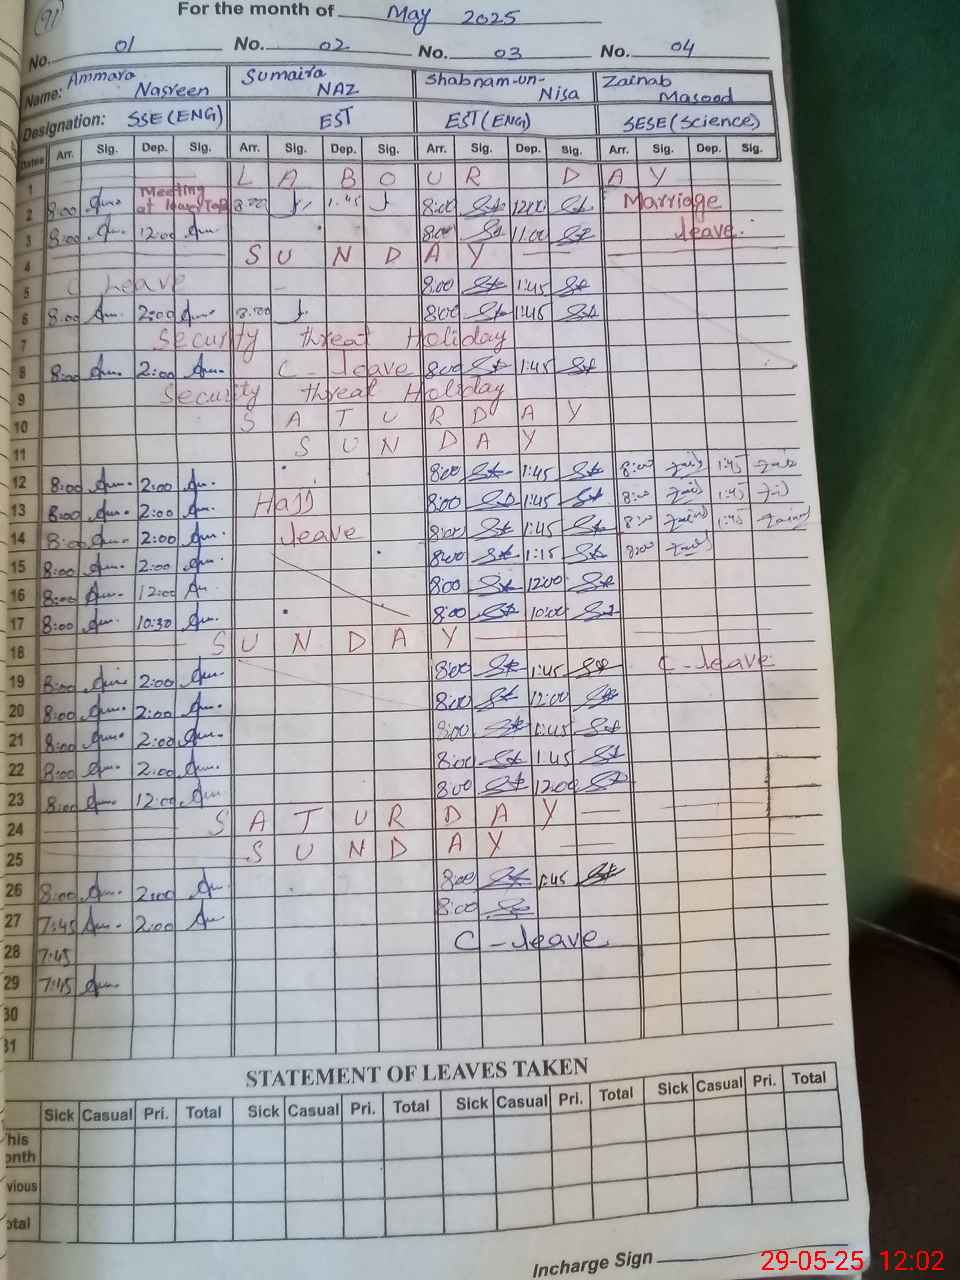 91
For the month of May 2025
No. 01 No. 02 No. 03 No. 04
Name: Ammara Nasreen Sumaira NAZ Shabnam-un-Nisa Zainab Masood
Designation: SSE (ENG) EST EST (ENG) SESE (Science)
Dates Arr. Sig. Dep. Sig. Arr. Sig. Dep. Sig. Arr. Sig. Dep. Sig. Arr. Sig. Dep. Sig.
1 LABOUR DAY
2 8:00 Meeting at 8:00 1:45 8:00 12:00 Marriage
3 8:00 12:00 8:00 11:00 leave.
4 SUNDAY
5 C Leave 8:00 1:45
6 8:00 2:00 8:00 8:00 1:45
7 Security threat Holiday
8 8:00 2:00 C - leave 8:00 1:45
9 Security threat Holiday
10 SATURDAY
11 SUNDAY
12 8:00 2:00 8:00 1:45 8:00 1:45
13 8:00 2:00 Hajj 8:00 1:45 8:00 1:45
14 8:00 2:00 leave 8:00 1:45 8:00 1:45
15 8:00 2:00 8:00 1:15 8:00
16 8:00 12:00 8:00 12:00
17 8:00 10:30 8:00 10:00
18 SUNDAY
19 8:00 2:00 8:00 1:45 C - leave
20 8:00 2:00 8:00 12:00
21 8:00 2:00 8:00 1:45
22 8:00 2:00 8:00 1:45
23 8:00 12:00 8:00 12:00
24 SATURDAY
25 SUNDAY
26 8:00 2:00 8:00 1:45
27 7:45 2:00 8:00
28 7:45 C - leave
29 7:45
30
31
STATEMENT OF LEAVES TAKEN
Sick Casual Pri. Total Sick Casual Pri. Total Sick Casual Pri. Total Sick Casual Pri. Total
his
onth
vious
otal
Incharge Sign
29-05-25 12:02